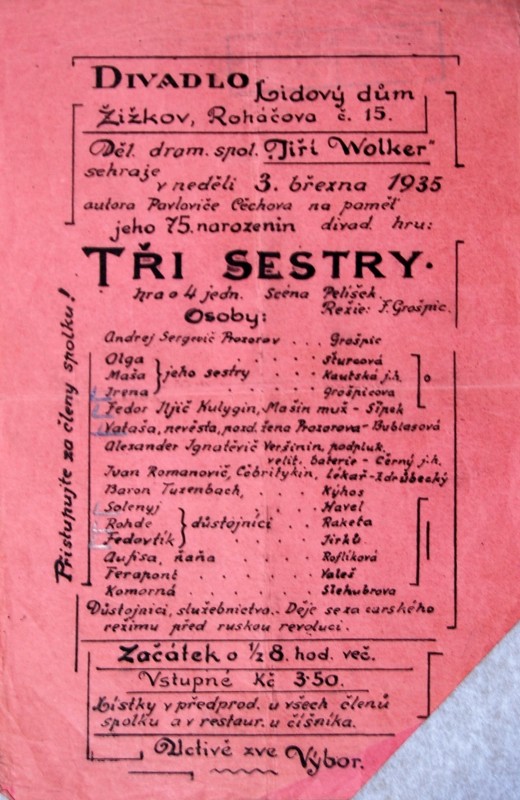 DIVADLO Lidový dům
Žižkov, Roháčova č. 15.
Děl. dram. spol. "Jiří Wolker"
sehraje
v neděli 3. března 1935
autora Pavloviče Čechova na paměť
jeho 75. narozenin divad. hru:
TŘI SESTRY.
hra o 4 jedn. Scéna Pelíšek.
Režie: F. Grošpic.
Osoby:
Andrej Sergevič Prozorov . . . . Grošpic
Olga . . . . Šturcová
Maša } jeho sestry . . . . Kautská j.h.
Irena . . . . Grošpicova
Fedor Iljič Kulygin, Mašin muž - Šípek
Nataša, nevěsta, pozd. žena Prozorova - Bublasová
Alexander Ignatěvič Veršinin, podpluk.
velit. baterie - Černý j.h.
Ivan Romanovič, Čebritykin, Lékař - Zdrůbecký
Baron Tuzenbach, . . . Kýhos
Solenyj . . . Havel
Rohde } důstojníci . . . Raketa
Fedovtík . . . Jirků
Aufisa, ňaňa . . . Roflíková
Ferapont . . . . . . Valeš
Komorná . . . . . Slehubrova
Důstojníci, služebnictvo. Děje se za carského
režimu před ruskou revolucí.
Přistupujte za členy spolku!
Začátek o ½ 8. hod. več.
Vstupné Kč 3·50.
Lístky v předprod. u všech členů
spolku a v restaur. u číšníka.
Uctivě zve Výbor.